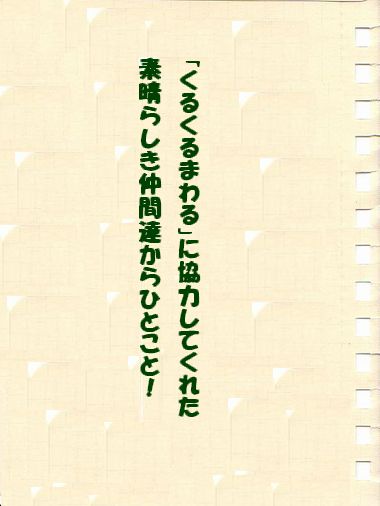 「くるくるまわる」に協力してくれた
素晴らしき仲間達からひとこと！